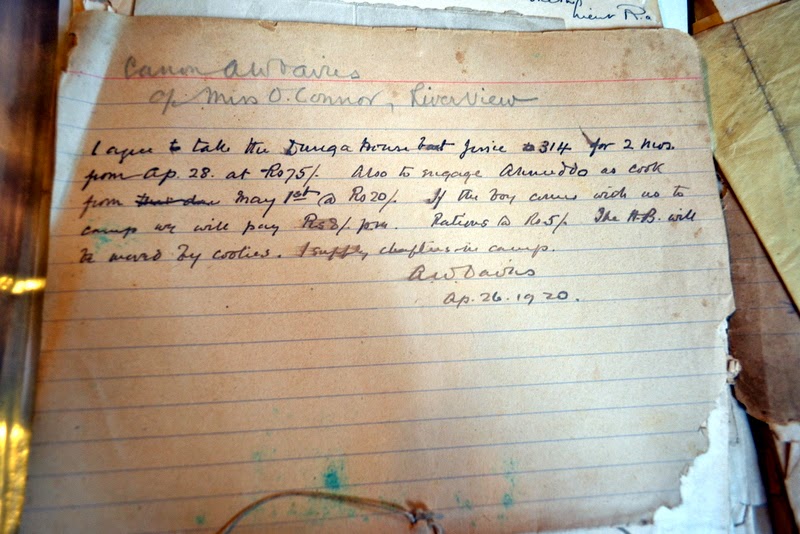 Canon AW Davies
c/o Miss O. Connor, RiverView
I agree to take the Dunga House boat Junie 314 for 2 mos.
from Ap. 28. at Rs 75/. Also to engage Ahmeddo as cook
from May 1st @ Rs 20/. If the boy comes with us to
camp we will pay Rs 8/ p.m. Rations @ Rs 5/. The H.B. will
be moved by coolies. I supply in camp.
A.W. Davies
Ap. 26. 1920.